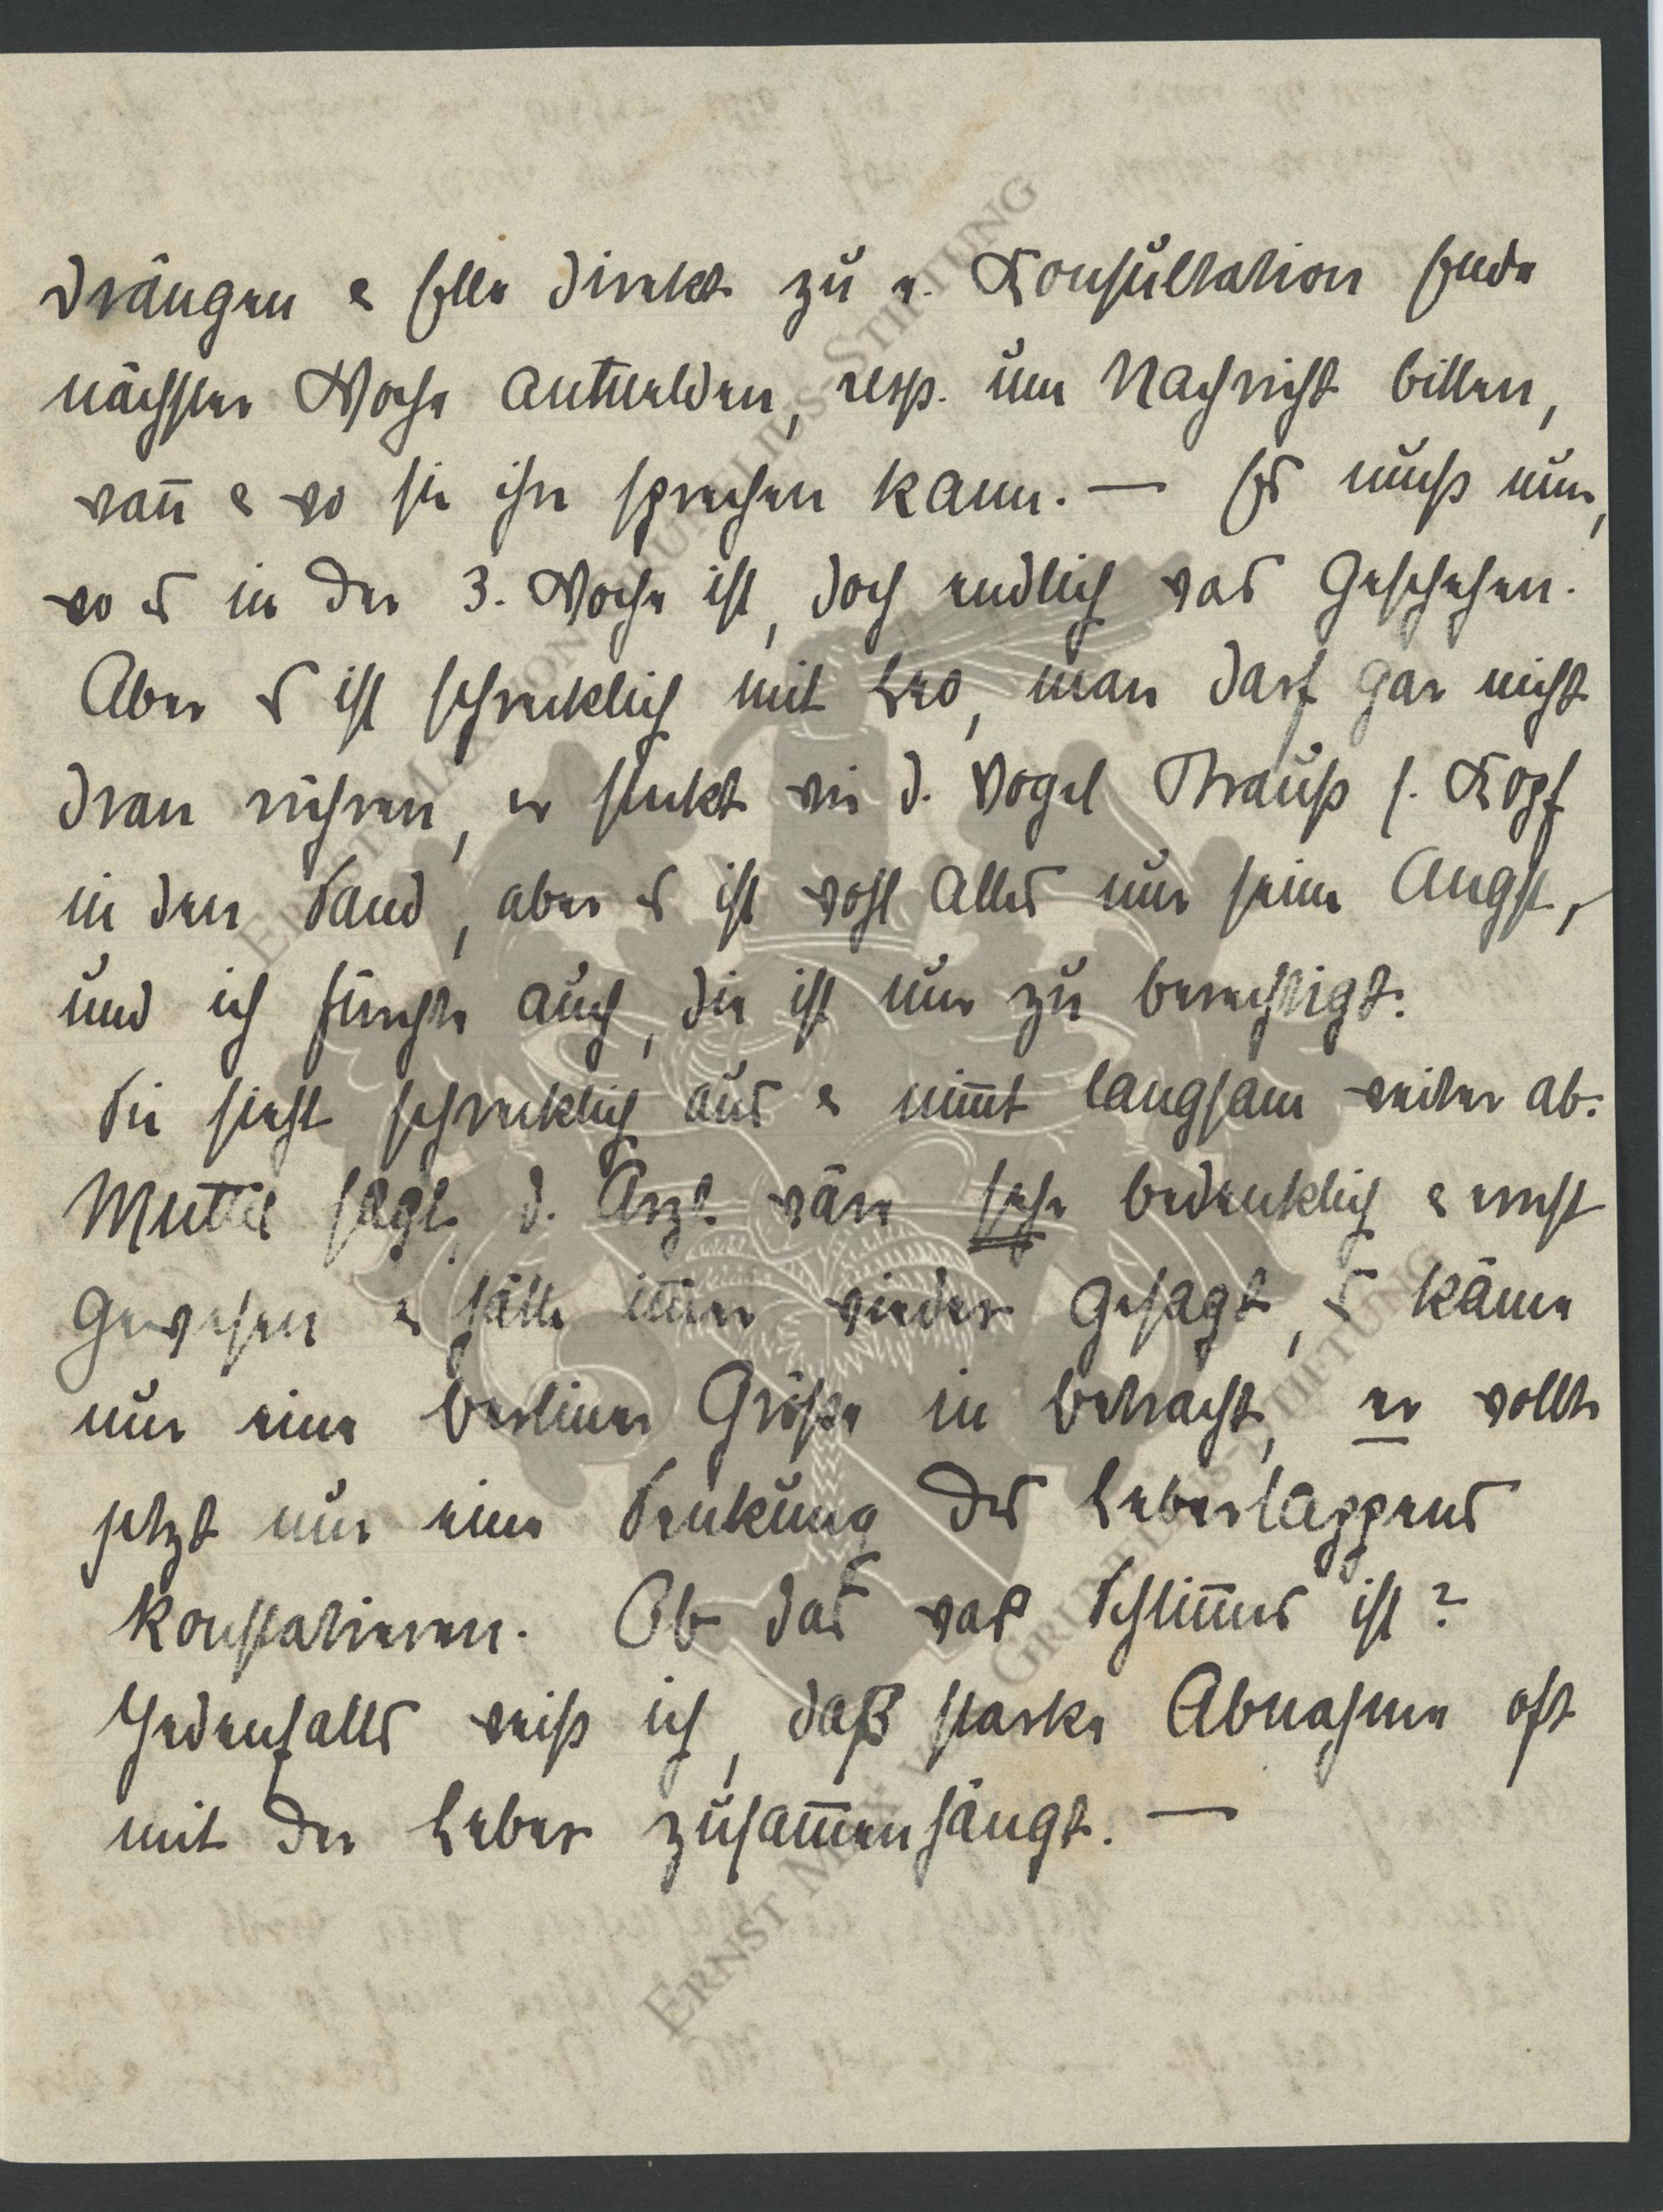 drängen & Elle direkt zu e. Konsultation Ende
nächster Woche anmelden, resp. um Nachricht bitten,
wañ & wo sie ihn sprechen kann. — Es muß nun,
wo es in der 3. Woche ist, doch endlich was geschehen.
Aber es ist schrecklich mit Leo, man darf gar nicht
dran rühren, er steckt wie d. Vogel Strauß s. Kopf
in den Sand, aber es ist wohl Alles nur seine Angst,
und ich fürchte auch, die ist nur zu berechtigt.
Sie sieht schrecklich aus & nim̅t langsam weiter ab.
Muttel sagt, d. Arzt wäre sehr bedenklich & ernst
gewesen & hätte im̅er wieder gesagt, es käme
nur eine Berliner Größe in Betracht, er wollte
jetzt nur eine Senkung des Leberlappens
konstatieren. Ob das was Schlim̅es ist?
Jedenfalls weiß ich, daß starke Abnahme oft
mit der Leber zusam̅enhängt. —
ERNST MAX VON GRUNELIUS-STIFTUNG
ERNST MAX VON GRUNELIUS-STIFTUNG